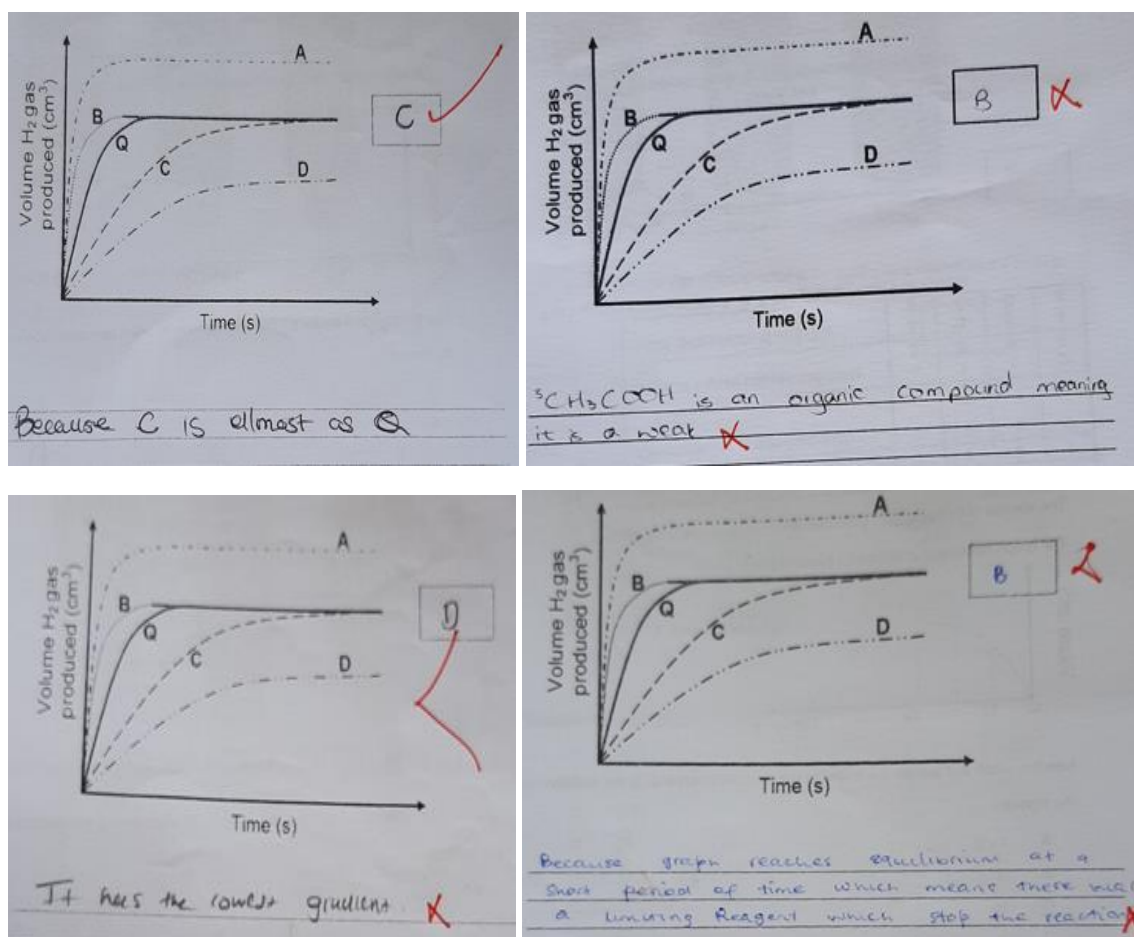 A
B
Q
C
D
Volume H₂ gas
produced (cm³)
Time (s)
C
Because C is allmost as Q
A
B
Q
C
D
Volume H₂ gas
produced (cm³)
Time (s)
B
CH₃COOH is an organic compound meaning
it is a weak
A
B
Q
C
D
Volume H₂ gas
produced (cm³)
Time (s)
D
It has the lowest gradient
A
B
Q
C
D
Volume H₂ gas
produced (cm³)
Time (s)
B
Because graph reaches equilibrium at a
short period of time which means there
a limiting Reagent which stop the reaction